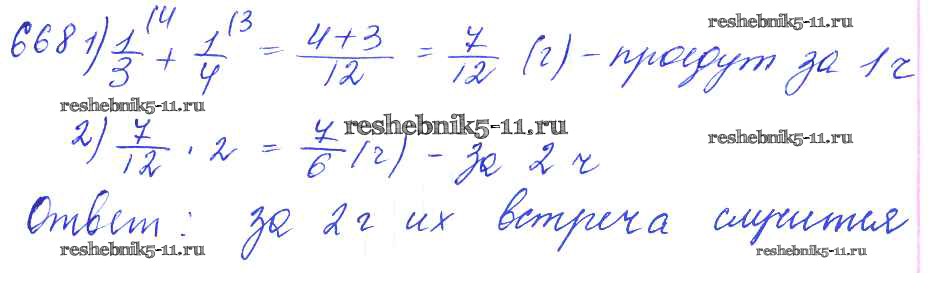 reshebnik5-11.ru
668 1) 1/3 (4 + 1/4 (3 = 4+3/12 = 7/12 (г) - проедут за 1 ч
reshebnik5-11.ru
2) 7/12 · 2 = 7/6 (г) - за 2 ч
reshebnik5-11.ru
reshebnik5-11.ru
Ответ: за 2 г их встреча случится
reshebnik5-11.ru
reshebnik5-11.ru